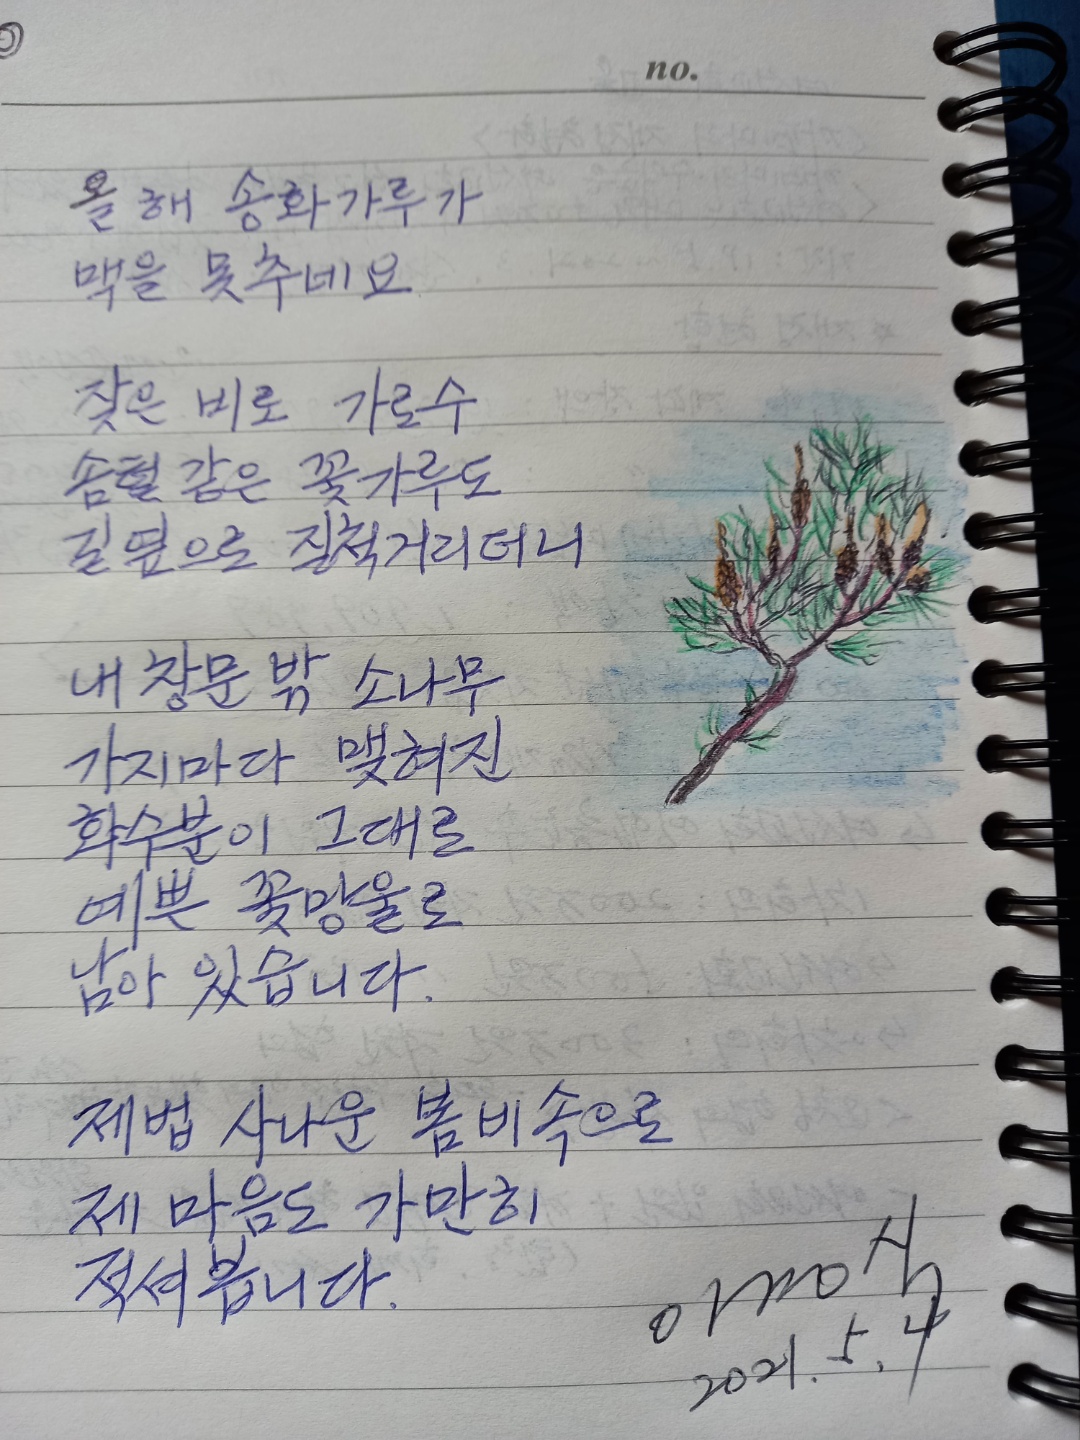 no.
올해 송화가루가
맥을 못추네요
잦은 비로 가로수
솜털 같은 꽃가루도
길옆으로 질척거리더니
내 창문 밖 소나무
가지마다 맺혀진
화수분이 그대로
예쁜 꽃망울로
남아 있습니다.
제법 사나운 봄비속으로
제 마음도 가만히
적셔봅니다.
2021. 5. 4